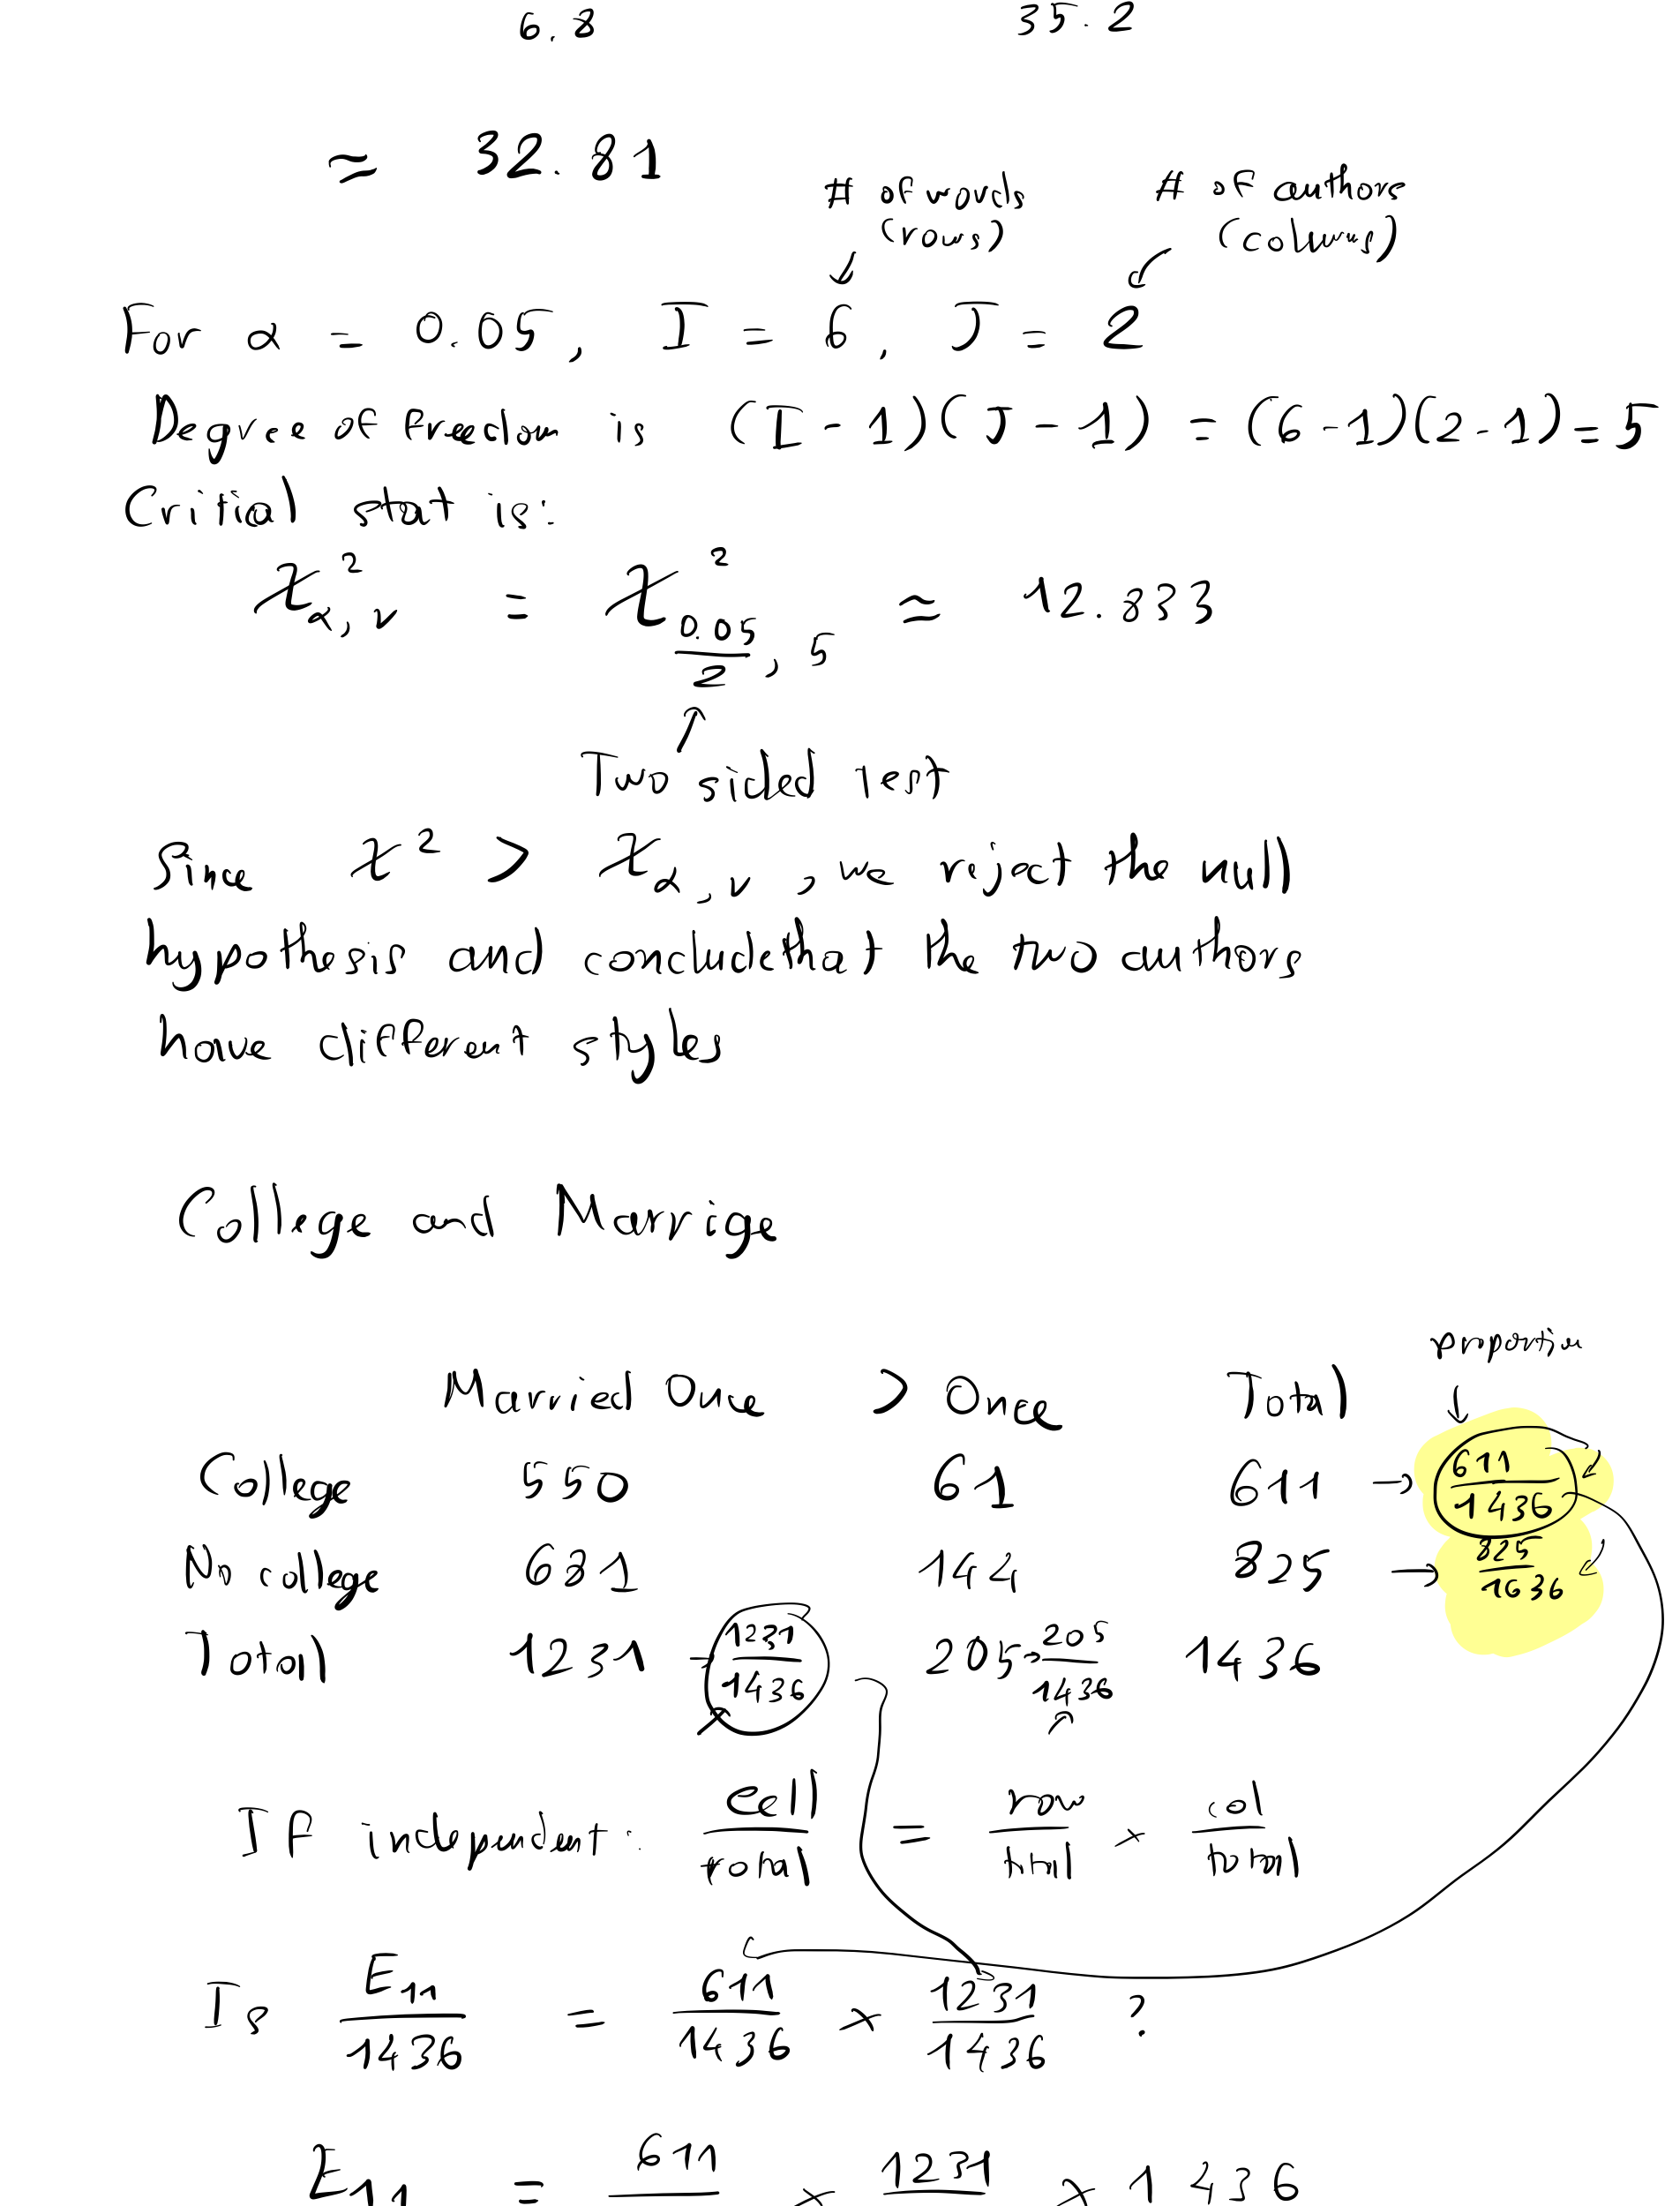 6.8 35.2
≈ 32.81
# of words # of authors
(rows) (columns)
For α = 0.05, I = 6, J = 2
Degree of freedom is (I - 1)(J - 1) = (6 - 1)(2 - 1) = 5
Critial stat is:
χ²α,ν = χ²0.05/2, 5 ≈ 12.833
Two sided test
Since χ² > χα,ν, we reject the null
hypothesis and conclude that the two authors
have different styles
College and Marrige
proportion
Married Once > Once Total
College 550 61 611 → 611/1436
No college 681 144 825 → 825/1436
Total 1231 → 1231/1436 205 → 205/1436 1436
If independent: cell/total = row/total × col/total
Is E11/1436 = 611/1436 × 1231/1436 ?
E11 = 611 × 1231 × 1436